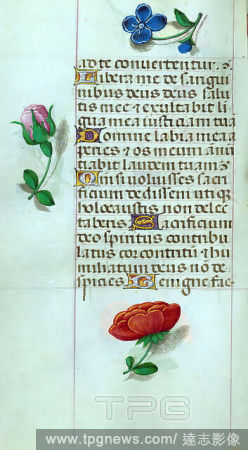 ad te convertentur.
Libera me de sangui
nibus deus deus salu
tis mee et exultabit li
gua mea iusticiam tuā
Domine labia mea a
peries et os meum anū
tiabit laudem tuam
Qm si voluisses sacri
ficium dedissem utiq
holocaustis non delec
taberis Sacrificium
deo spiritus contribu
latus cor contritū et hu
miliatum deus nō de
spicies Benigne fac
TPG
www.tpgnews.com/ 達志影像